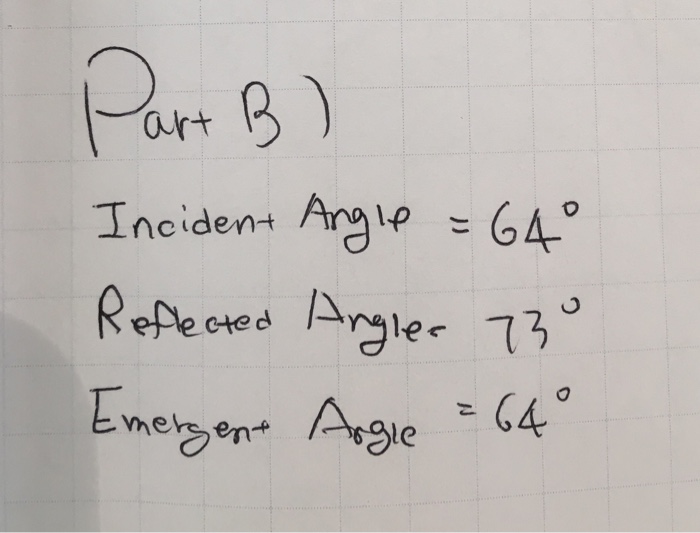 Part B)
Incident Angle = 64°
Reflected Angle = 73°
Emergent Angle = 64°